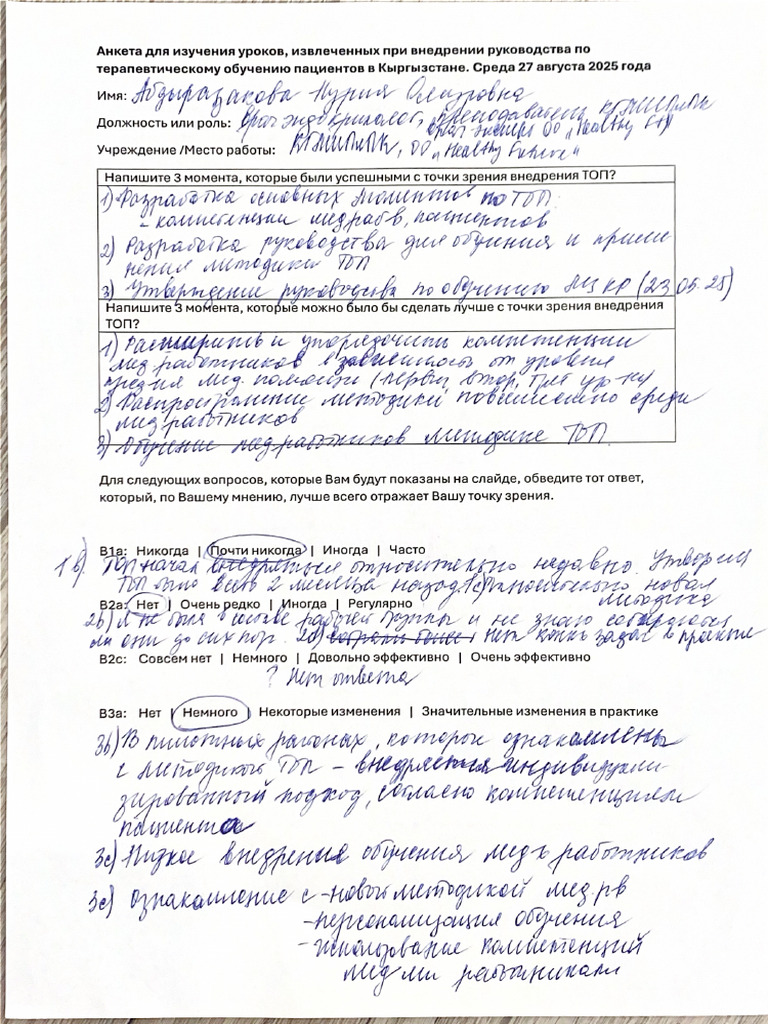 Анкета для изучения уроков, извлеченных при внедрении руководства по
терапевтическому обучению пациентов в Кыргызстане. Среда 27 августа 2025 года
Имя: Абдыразакова Нурия Омузровна
Должность или роль: врач эндокринолог, преподаватель КГМИПиПК
врач эксперт ОО "Healthy
Учреждение /Место работы: КГМИПиПК, ОО "Healthy Future"
Напишите 3 момента, которые были успешными с точки зрения внедрения ТОП?
1) Разработка основных моментов по ТОП:
- компетенции медрабв, пациентов
2) Разработка руководства для обучения и приме
нения методики ТОП
3) Утверждение руководства по обучению МЗ КР (23.05.25)
Напишите 3 момента, которые можно было бы сделать лучше с точки зрения внедрения
ТОП?
1) Расширить и упорядочить компетенции
мед работников в зависимость от уровня
мед. помощи (перви, втор, трет ур-ни)
2) Распространение методики повсеместно среди
мед работников
3) Обучение медработников методике ТОП.
Для следующих вопросов, которые Вам будут показаны на слайде, обведите тот ответ,
который, по Вашему мнению, лучше всего отражает Вашу точку зрения.
В1а: Никогда | Почти никогда | Иногда | Часто
1в) ТОП начал внедряться относительно недавно. Утвержден
ТОП было всего 2 месяца назад. относительно новая
методика
В2а: Нет | Очень редко | Иногда | Регулярно
2в) Я не была в составе рабочей группы и не знаю собираются
ли они до сих пор. нет
В2с: Совсем нет | Немного | Довольно эффективно | Очень эффективно
? Нет ответа
В3а: Нет | Немного | Некоторые изменения | Значительные изменения в практике
3в) В пилотных районах, которые ознакомлены
с методикой ТОП - внедряется индивидуали-
зированный подход, согласно компетенциям
пациента
3с) Низкое внедрение обучения мед работников
3с) Ознакомление с - новой методикой мед. рв
- персонализация обучения
- использование компетенций
мед ми работниками